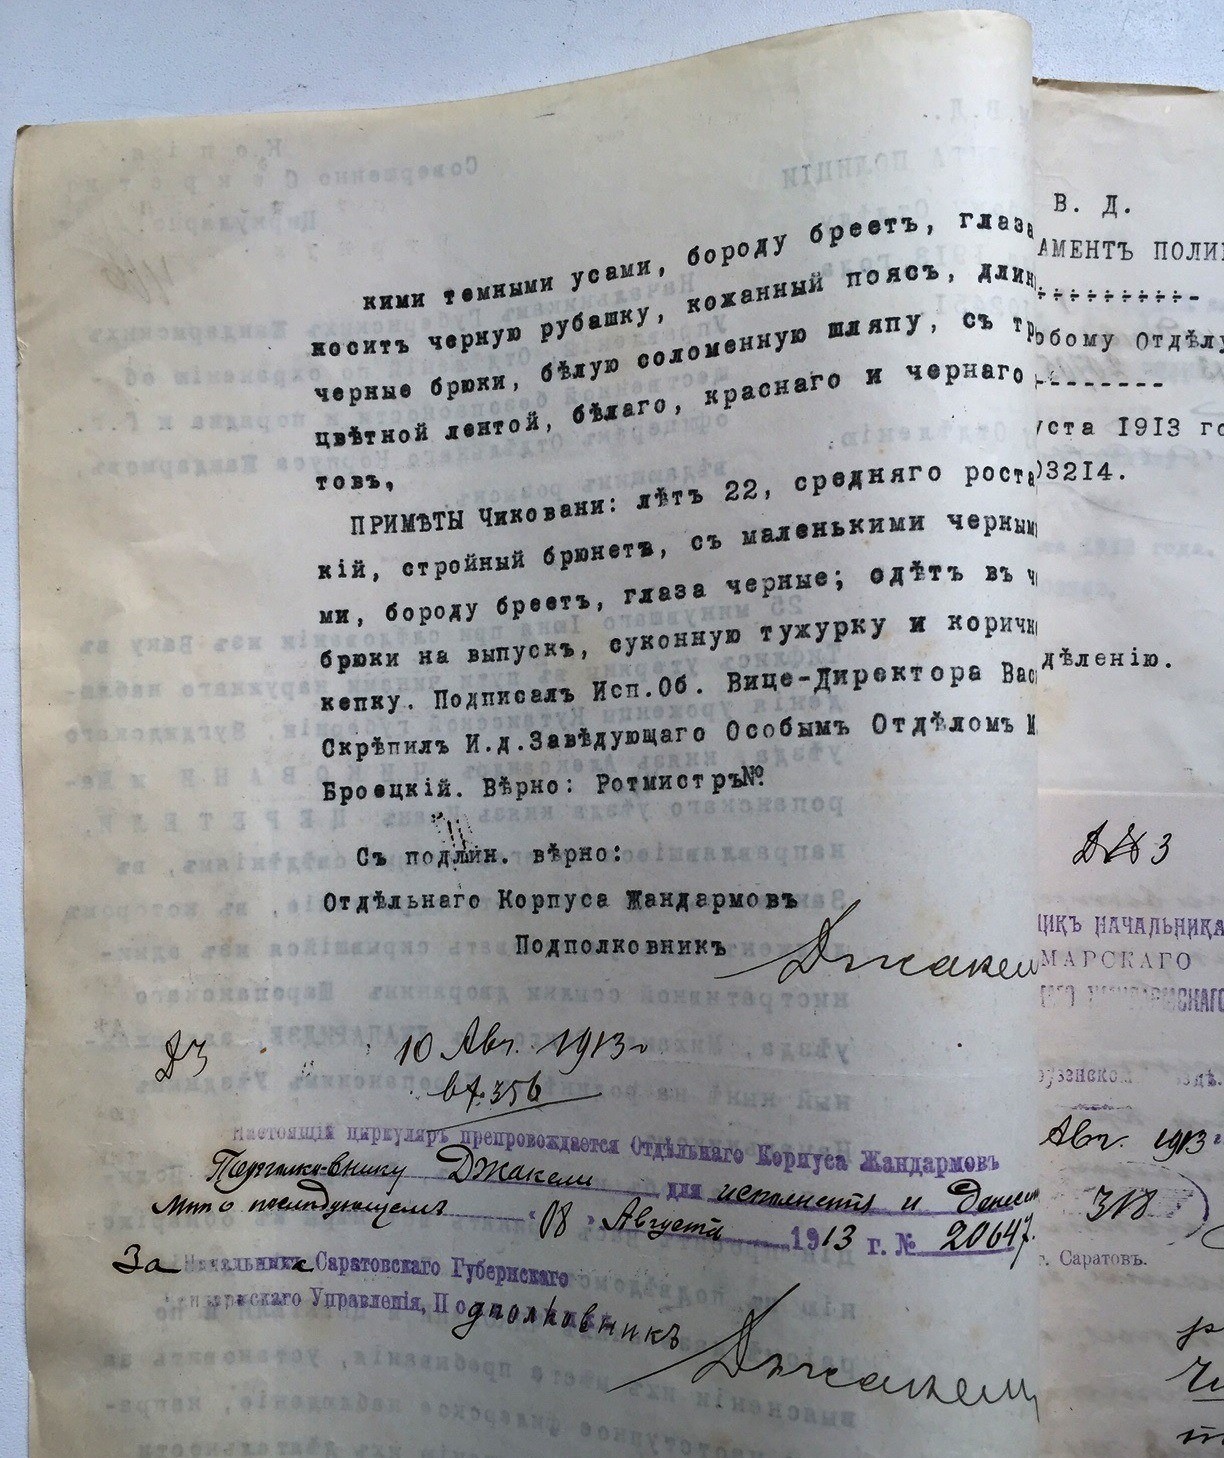 кими темными усами, бороду бреетъ, глаза
носитъ черную рубашку, кожанный поясъ, длин
черные брюки, бѣлую соломенную шляпу, съ тр
цвѣтной лентой, бѣлаго, краснаго и чернаго
товъ,
ПРИМѢТЫ Чиковани: лѣтъ 22, средняго роста
кій, стройный брюнетъ, съ маленькими черным
ми, бороду бреетъ, глаза черные; одѣтъ въ ч
брюки на выпускъ, суконную тужурку и коричн
кепку. Подписалъ Исп.Об. Вице-Директора Вас
Скрѣпилъ И.д.Завѣдующаго Особымъ Отдѣломъ М
Броецкій. Вѣрно: Ротмистръ№
Съ подлин. вѣрно:
Отдѣльнаго Корпуса Жандармовъ
Подполковникъ Джакели
10 Авг. 1913 г
вх. 356
Настоящій циркуляръ препровождается Отдѣльнаго Корпуса Жандармовъ
Подполковнику Джакели для исполненія и донесен
о послѣдующемъ "08" Августа 1913 г. № 20647.
За Начальника Саратовскаго Губернскаго
Жандармскаго Управленія, Подполковникъ
Джакели
В. Д.
АМЕНТЪ ПОЛИЦ
обому Отдѣлу
уста 1913 го
03214.
дѣленію.
ЩИКЪ НАЧАЛЬНИКА
МАРСКАГО
Авг. 1913 г
318
г. Саратовъ.